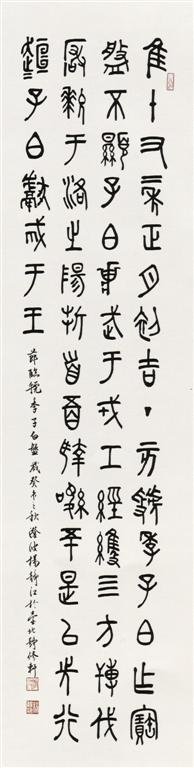 隹十又二年正月初吉丁亥虢季子白乍寶
盤不顯子白壯武于戎工經維四方搏伐
厰允于洛之陽折首五百執訊五十是以先行
趄趄子白獻戒于王
節臨虢季子白盤歲癸之秋楊靜江於京北靜修軒